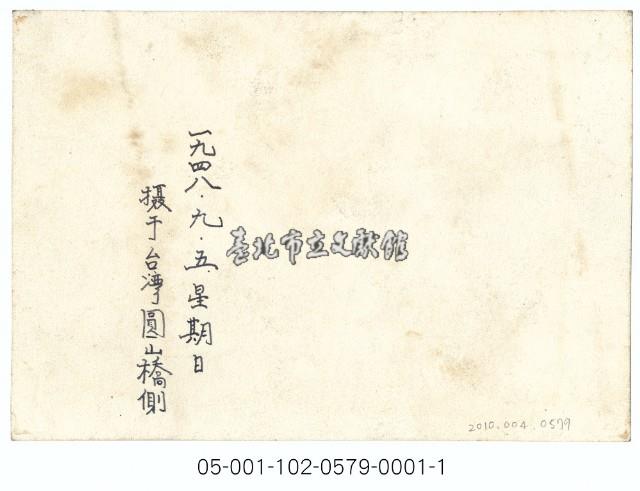 一九四八.九.五.星期日
摄于台湾圓山橋側
臺北市立文獻館
2010.004.0579
05-001-102-0579-0001-1